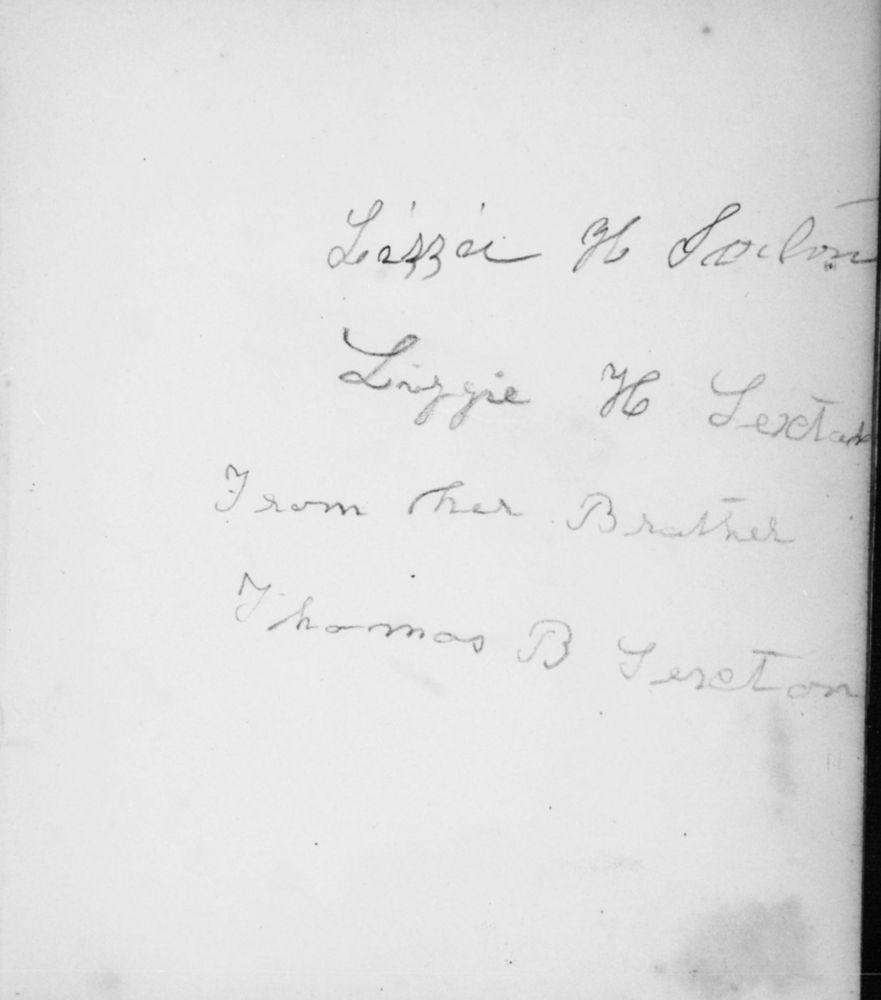 Lizzie H Sexton
Lizzie H Sexton
From her Brother
Thomas B Sexton